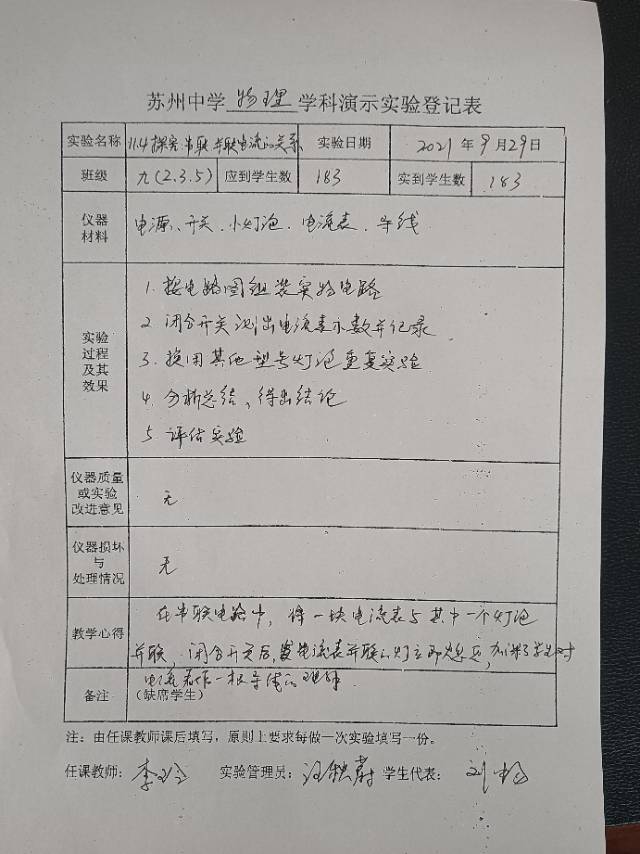 苏州中学 物理 学科演示实验登记表
实验名称 11.4探究串联并联电流的关系 实验日期 2021年9月29日
班级 九(2.3.5) 应到学生数 183 实到学生数 183
仪器材料 电源、开关、小灯泡、电流表、导线
实验过程及其效果
1. 按电路图组装实物电路
2. 闭合开关测出电流表示数并记录
3. 换用其他型号灯泡重复实验
4. 分析总结、得出结论
5. 评估实验
仪器质量或实验改进意见 无
仪器损坏与处理情况 无
教学心得 在串联电路中,将一块电流表与其中一个灯泡
并联,闭合开关后,发电流表并联的灯立即熄灭,加深了学生对
电流表作一根导线的理解
备注 (缺席学生)
注:由任课教师课后填写,原则上要求每做一次实验填写一份。
任课教师: 李 实验管理员: 汪 学生代表: 刘杨